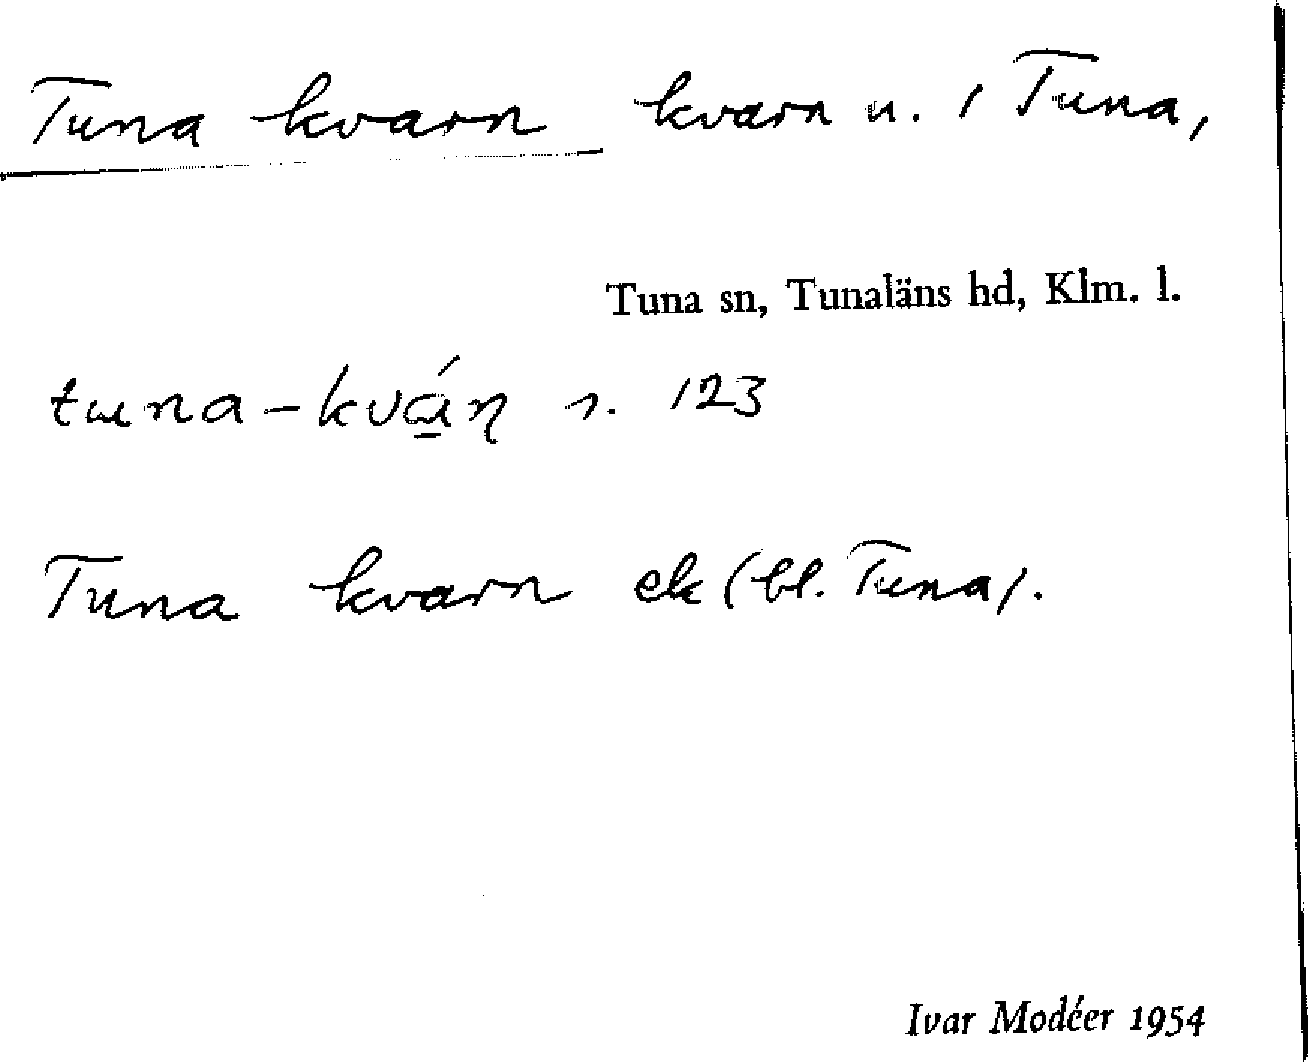 Tuna kvarn kvarn u. 1 Tuna,
Tuna sn, Tunaläns hd, Klm. l.
tɯna-kvɑ́ɳ s. 123
Tuna kvarn ek (bl. Tuna).
Ivar Modéer 1954